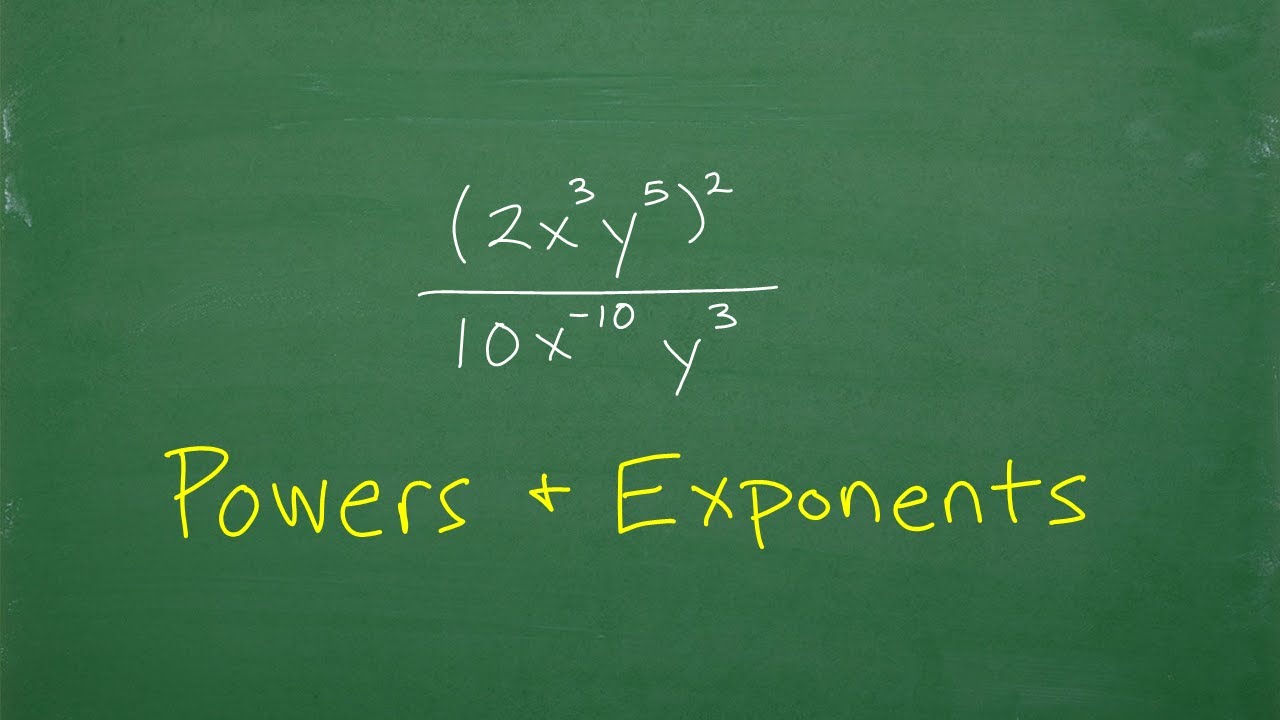 (2x³y⁵)²
10x⁻¹⁰ y³
Powers + Exponents